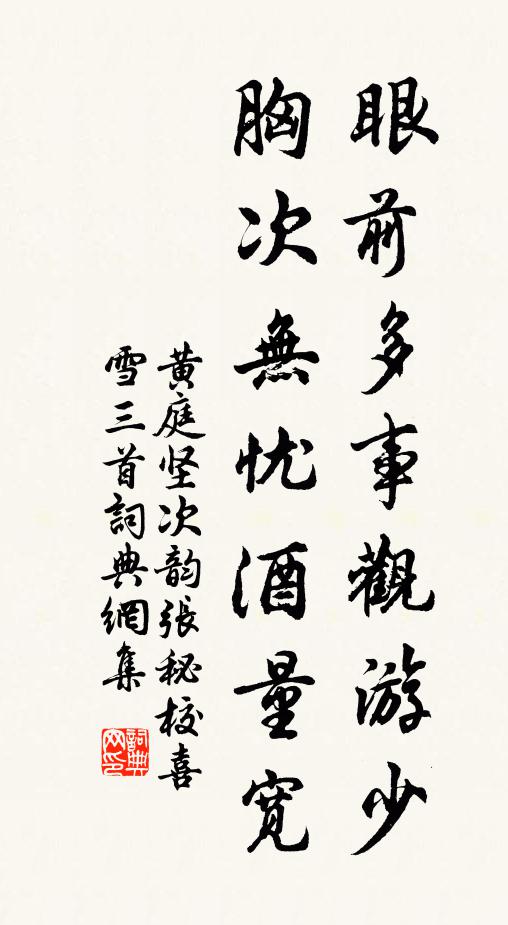 眼前多事觀游少
胸次無忧酒量寬
黄庭坚次韵張秘校喜
雪三首詞典網集
詞典
网印